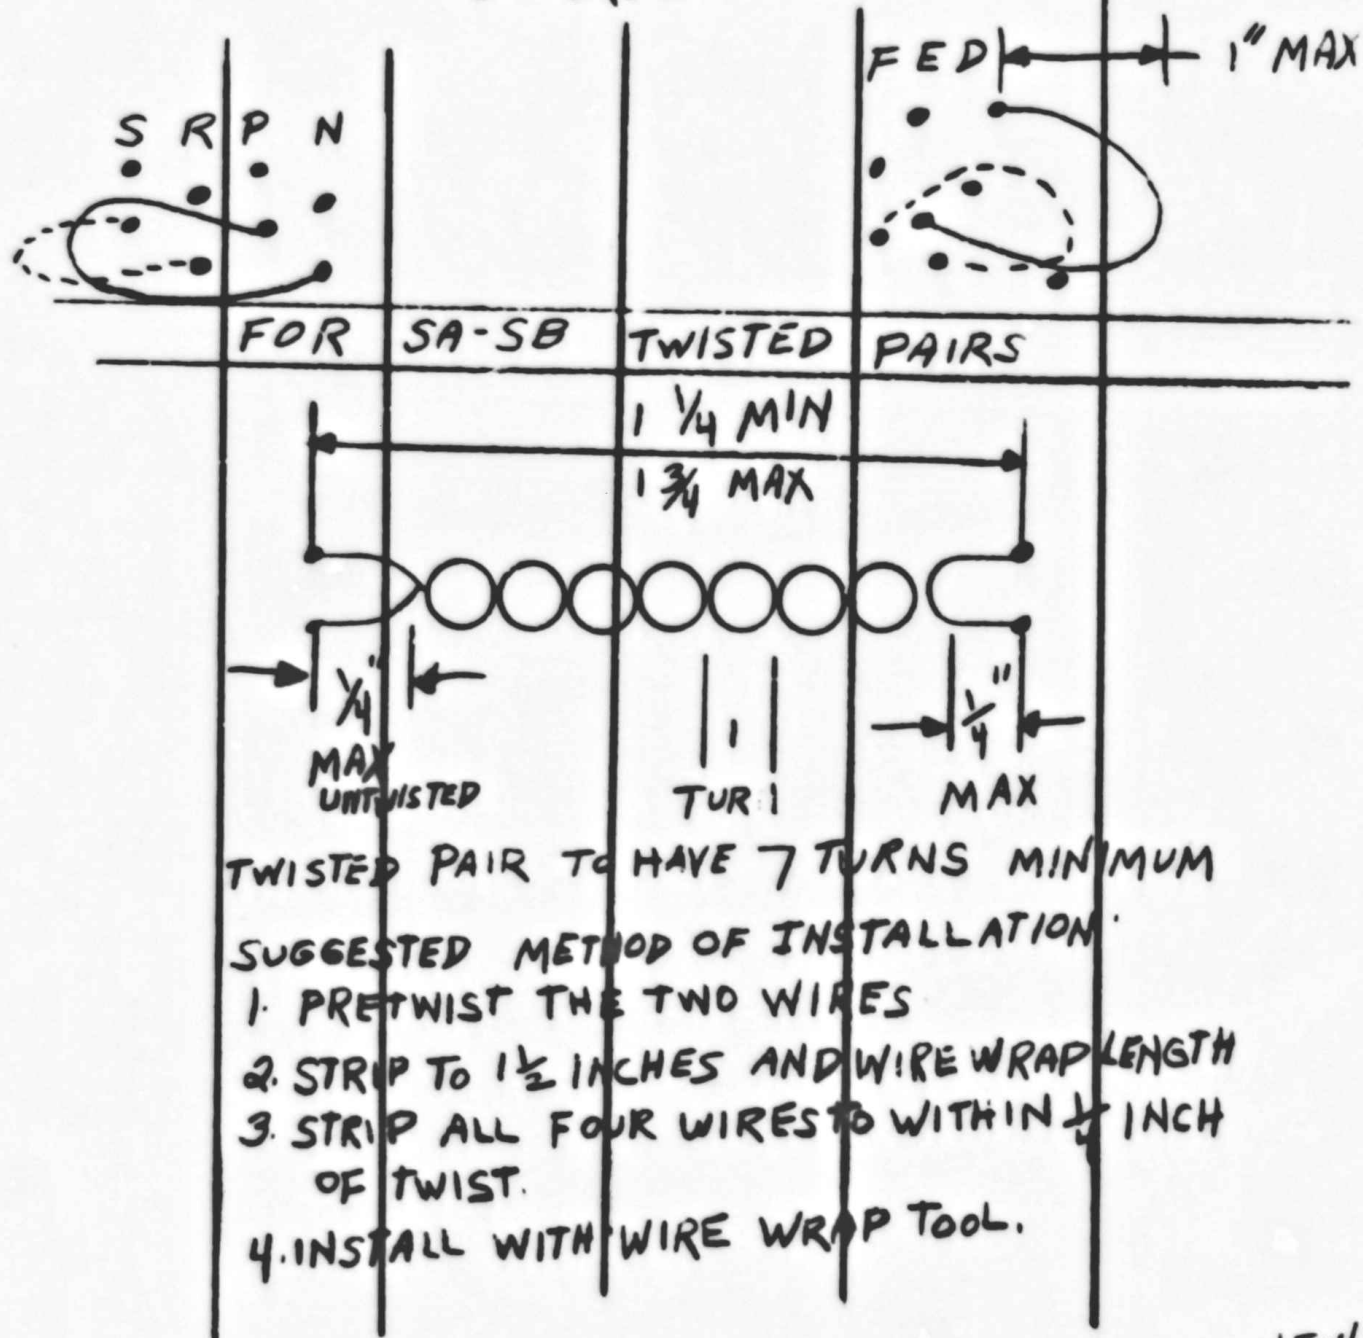 F E D 1" MAX
S R P N
FOR SA-SB TWISTED PAIRS
1 1/4 MIN
1 3/4 MAX
1/4" 1 1/4"
MAX
UNTWISTED TUR MAX
TWISTED PAIR TO HAVE 7 TURNS MINIMUM
SUGGESTED METHOD OF INSTALLATION
1. PRETWIST THE TWO WIRES
2. STRIP TO 1 1/2 INCHES AND WIRE WRAP LENGTH
3. STRIP ALL FOUR WIRES TO WITHIN 1/4 INCH
OF TWIST.
4. INSTALL WITH WIRE WRAP TOOL.